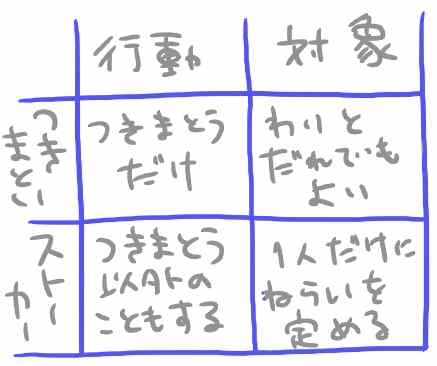 行動
対象
つきまとい
つきまとう
だけ
わりと
だれでも
よい
ストーカー
つきまとう
以外の
こともする
1人だけに
ねらいを
定める